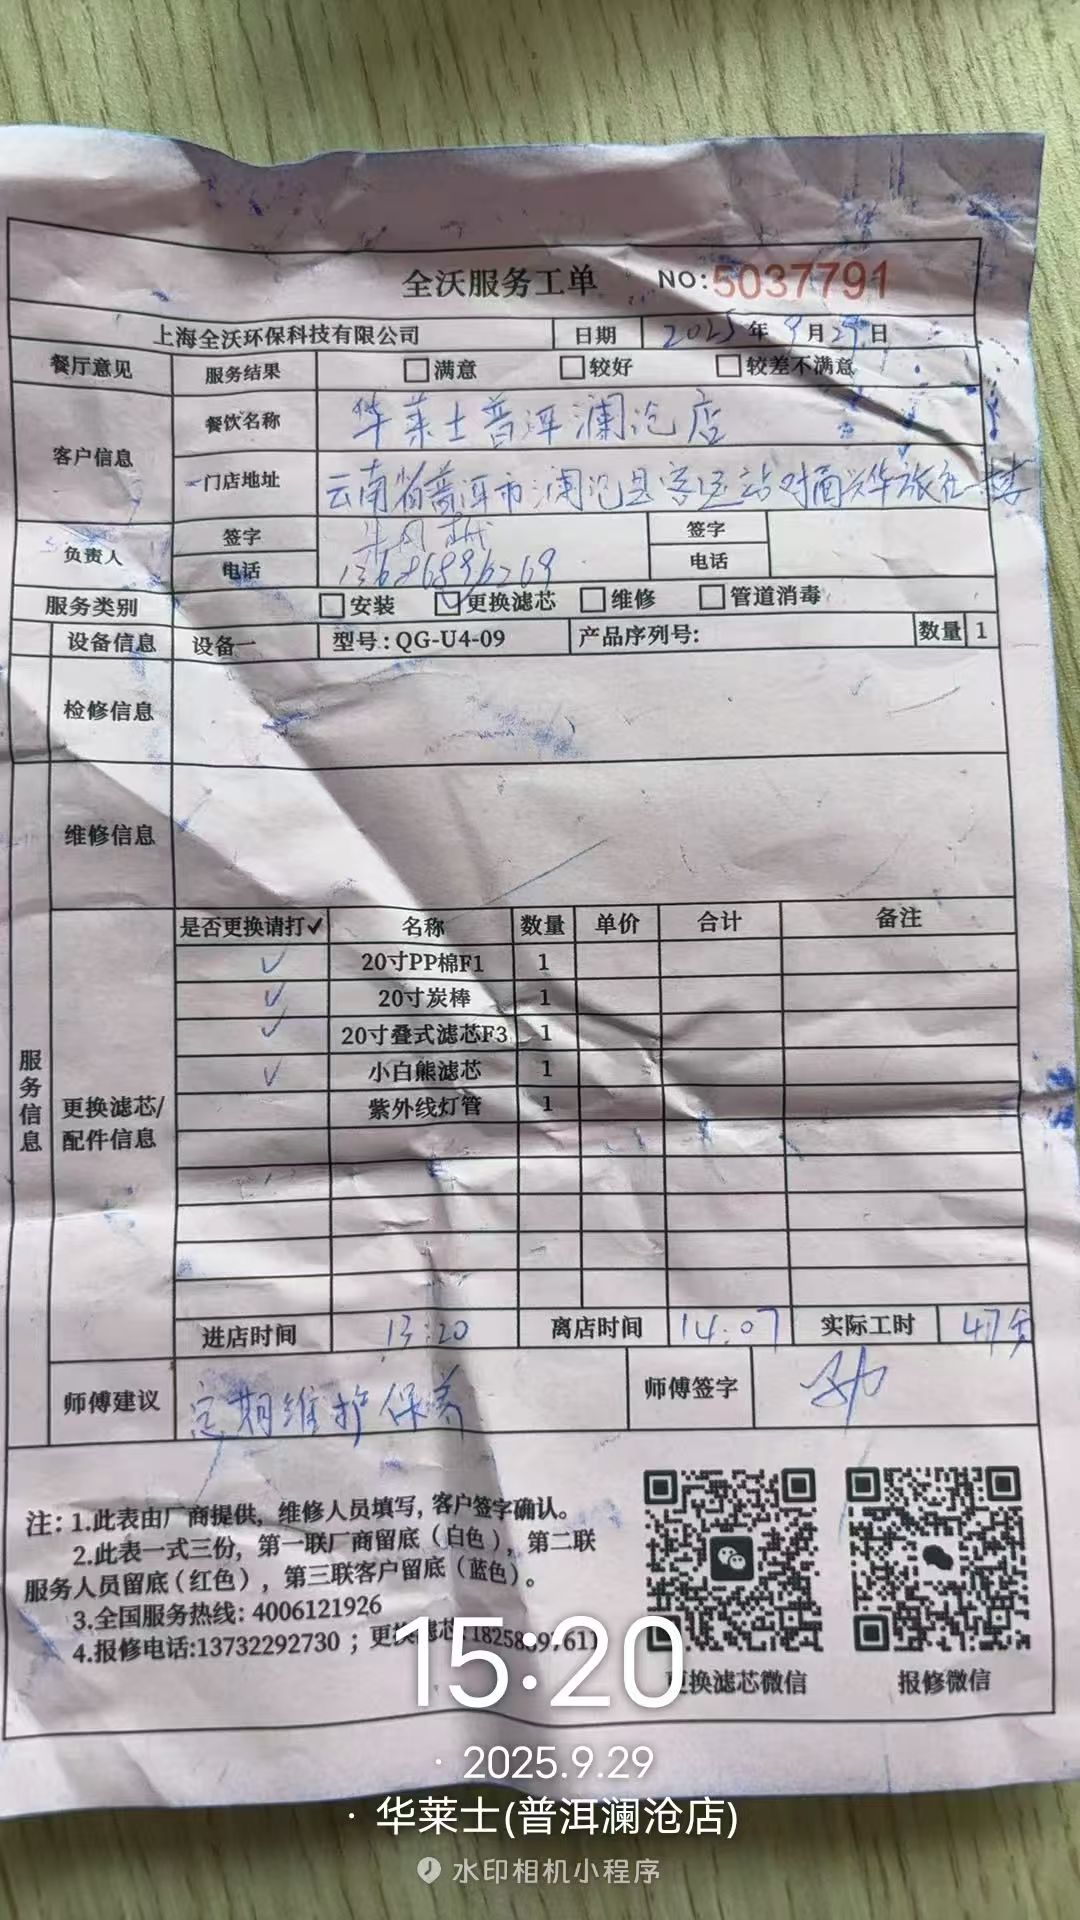 全沃服务工单 NO:5037791
上海全沃环保科技有限公司 日期 2025年9月29日
餐厅意见 服务结果 满意 较好 较差不满意
客户信息 餐饮名称 华莱士普洱澜沧店
门店地址 云南省普洱市澜沧县客运站对面兴华旅社一楼
负责人 签字 签字
电话 电话
服务类别 安装 更换滤芯 维修 管道消毒
设备信息 设备一 型号:QG-U4-09 产品序列号: 数量 1
检修信息
维修信息
服务信息
更换滤芯/
配件信息
是否更换请打✓ 名称 数量 单价 合计 备注
✓ 20寸PP棉F1 1
✓ 20寸炭棒 1
✓ 20寸叠式滤芯F3 1
✓ 小白熊滤芯 1
紫外线灯管 1
进店时间 13:20 离店时间 14:07 实际工时 47分
师傅建议 定期维护保养 师傅签字
注:1.此表由厂商提供,维修人员填写,客户签字确认。
2.此表一式三份,第一联厂商留底(白色),第二联
服务人员留底(红色),第三联客户留底(蓝色)。
3.全国服务热线:4006121926
4.报修电话:13732292730;更换滤芯
更换滤芯微信 报修微信
15:20
· 2025.9.29
· 华莱士(普洱澜沧店)
水印相机小程序